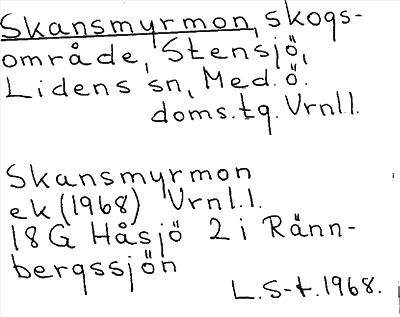 Skansmyrmon, skogs-
område, Stensjö,
Lidens sn, Med. ö.
doms.tg. Vrnl.l.
Skansmyrmon
ek (1968) Vrnl.l.
18G Håsjö 2 i Ränn-
bergssjön
L.S-t. 1968.